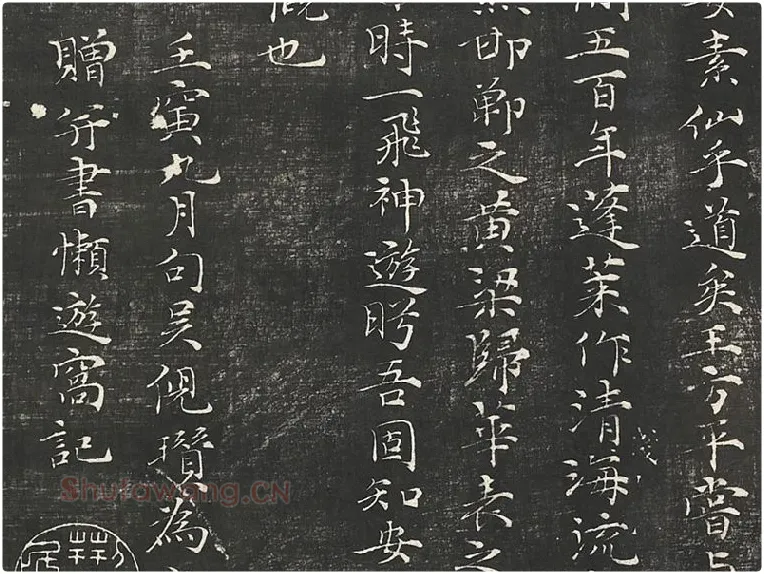 素仙乎道矣王方平嘗
五百年蓬莱作清海流
淺
邯鄲之黄粱歸華表之
時一飛神遊眄吾固知安
也
壬寅九月句吴倪瓚為
贈并書懶遊窩記
Shufawang.CN